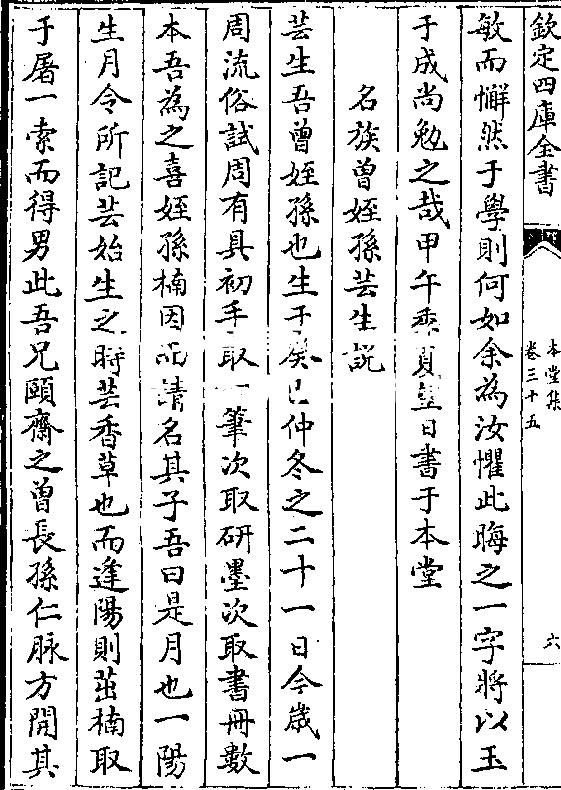 欽定四庫全書
本堂集
卷三十五
六
敏而懈然于學則何如余為汝懼此晦之一字將以玉
于成尚勉之哉甲午季夏望日書于本堂
名族曾姪孫芸生說
芸生吾曾姪孫也生于癸巳仲冬之二十一日今歲一
周流俗試周有具初手取一筆次取研墨次取書冊數
本吾為之喜姪孫楠因此請名其子吾曰是月也一陽
生月令所記芸始生之時芸香草也而逢陽則茁楠取
于屠一索而得男此吾兄頤齋之曾長孫仁脉方開其